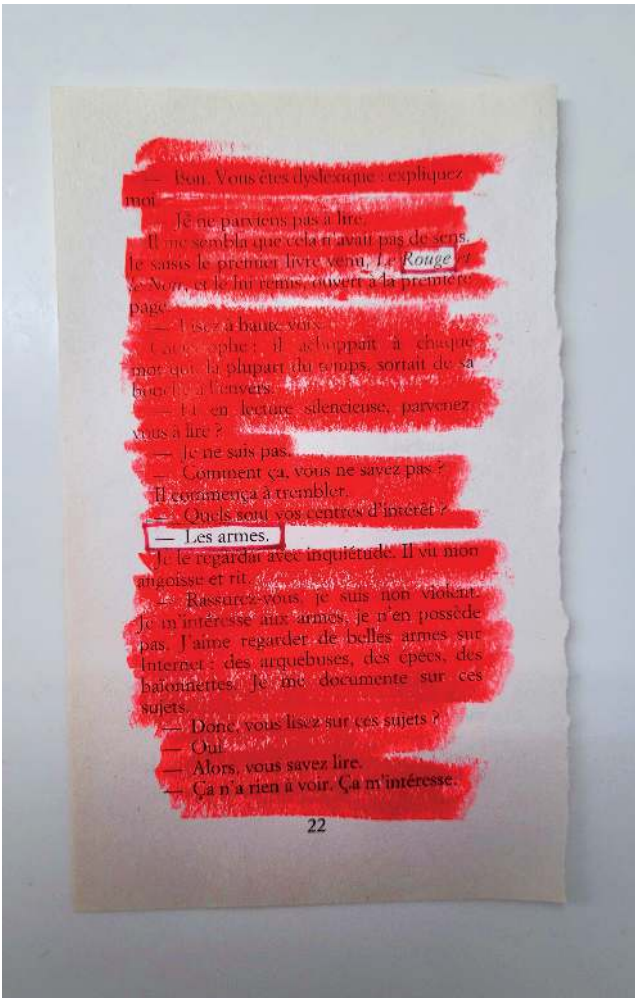 — Bon. Vous êtes dyslexique : expliquez
moi.
— Je ne parviens pas à lire.
Il me sembla que cela n'avait pas de sens.
Je saisis le premier livre venu, Le Rouge et
le Noir, et le lui remis, ouvert à la première
page.
— Lisez à haute voix.
Catastrophe : il achoppait à chaque
mot qui, la plupart du temps, sortait de sa
bouche à l'envers.
— Et en lecture silencieuse, parvenez
vous à lire ?
— Je ne sais pas.
— Comment ça, vous ne savez pas ?
Il commença à trembler.
— Quels sont vos centres d'intérêt ?
— Les armes.
Je le regardai avec inquiétude. Il vit mon
angoisse et rit.
— Rassurez-vous, je suis non violent.
Je m'intéresse aux armes, je n'en possède
pas. J'aime regarder de belles armes sur
Internet : des arquebuses, des épées, des
baïonnettes. Je me documente sur ces
sujets.
— Donc, vous lisez sur ces sujets ?
— Oui.
— Alors, vous savez lire.
— Ça n'a rien à voir. Ça m'intéresse.
22